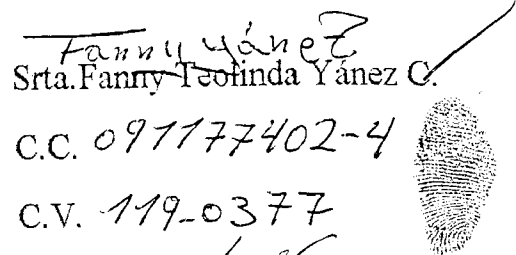 Fanny Yánez
Srta. Fanny Teofinda Yánez C.
C.C. 091177402-4
C.V. 119-0377